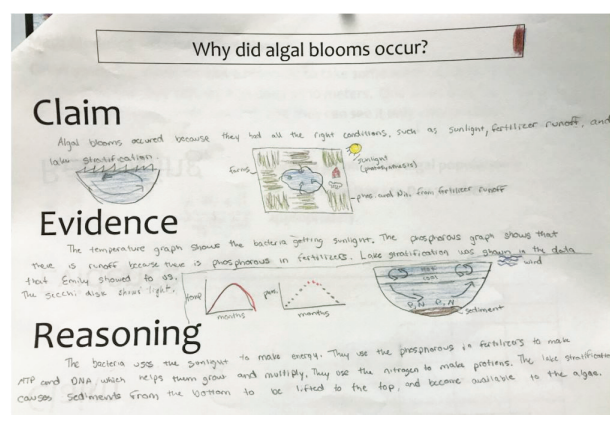 Why did algal blooms occur?
Claim
Algal blooms occured because they had all the right conditions, such as sunlight, fertilizer runoff, and
lake stratification
farms
sunlight
(photosynthesis)
phos. and Nit. from fertilizer runoff
Evidence
The temperature graph shows the bacteria getting sunlight. The phosphorous graph shows that
there is runoff because there is phosphorous in fertilizers. Lake stratification was shown in the data
that Emily showed to us.
The secchi disk shows light.
temp
months
phos.
months
hot
cool
wind
P, N P, N
sediment
Reasoning
The bacteria uses the sunlight to make energy. They use the phosphorous in fertilizers to make
ATP and DNA which helps them grow and multiply. They use the nitrogen to make protiens. The lake stratification
causes sediments from the bottom to be lifted to the top, and become available to the algae.